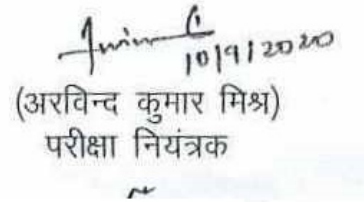 10/9/2020
(अरविन्द कुमार मिश्र)
परीक्षा नियंत्रक